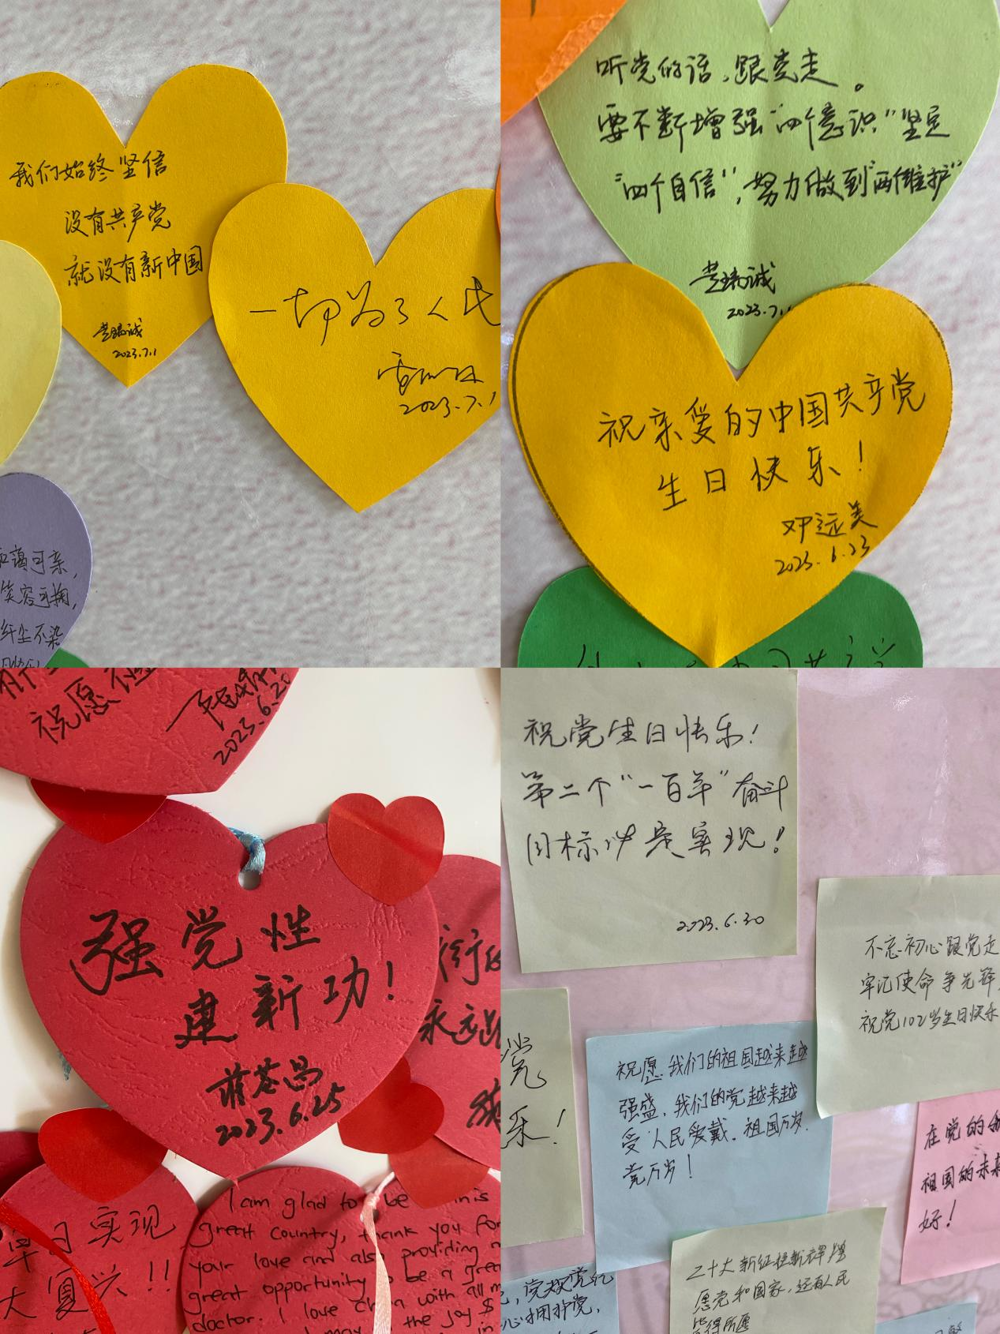 我们始终坚信
没有共产党
就没有新中国
2023.7.1
一切为了人民
2023.7.1
蔼可亲,
笑容可掬,
纤尘不染
听党的话,跟党走。
要不断增强"四个意识"坚定
"四个自信",努力做到"两个维护"
2023.7.1
祝亲爱的中国共产党
生日快乐!
邓远美
2023.6.23
祝愿祖
2023.6.20
强党性
建新功!
2023.6.25
行的
永远跟
早日实现
大复兴!!
I am glad to be in this
great country, thank you for
your love and also providing a
great opportunity to be a great
doctor. I love China with all m
the joy &
祝党生日快乐!
第二个"一百年"奋斗
目标必定实现!
2023.6.30
不忘初心跟党走
牢记使命争先锋
祝党102岁生日快乐
党
乐!
祝愿我们的祖国越来越
强盛,我们的党越来越
受人民爱戴。祖国万岁
党万岁!
在党的
祖国的未来
好!
二十大新征程新辉煌
愿党和国家,还有人民
皆得所愿
心拥护党,